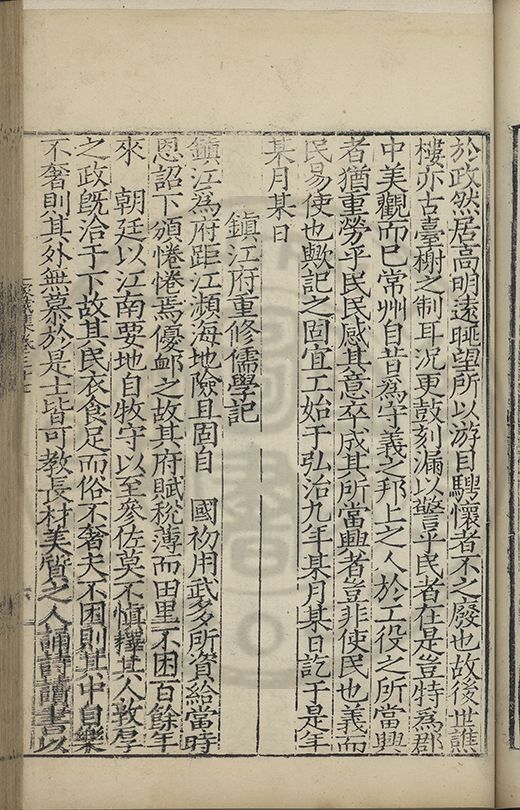 於政然居高明遠眺望所以游目騁懷者不之廢也故後世譙
樓亦古臺榭之制耳況更鼓刻漏以警乎民者在是豈特爲郡
中美觀而已常州自昔爲守義之邦上之人於工役之所當興
者猶重勞乎民民感其意卒成其所當興者豈非使民也義而
民易使也歟記之固宜工始于弘治九年某月某日訖于是年
某月某日
鎮江府重修儒學記
鎮江爲府距江瀕海地險且固自 國初用武多所資給當時
恩詔下頒惓惓焉優卹之故其府賦稅薄而田里不困百餘年
來 朝廷以江南要地自牧守以至參佐莫不慎擇其人敦厚
之政旣洽于下故其民衣食足而俗不奢夫不困則其中自樂
不奢則其外無慕於是士皆可教長材美質之人誦詩讀書以